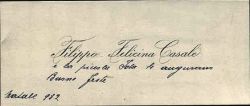 Filippo e Felicina Casale
e la piccola Ida le augurano
Buone feste
Natale 902